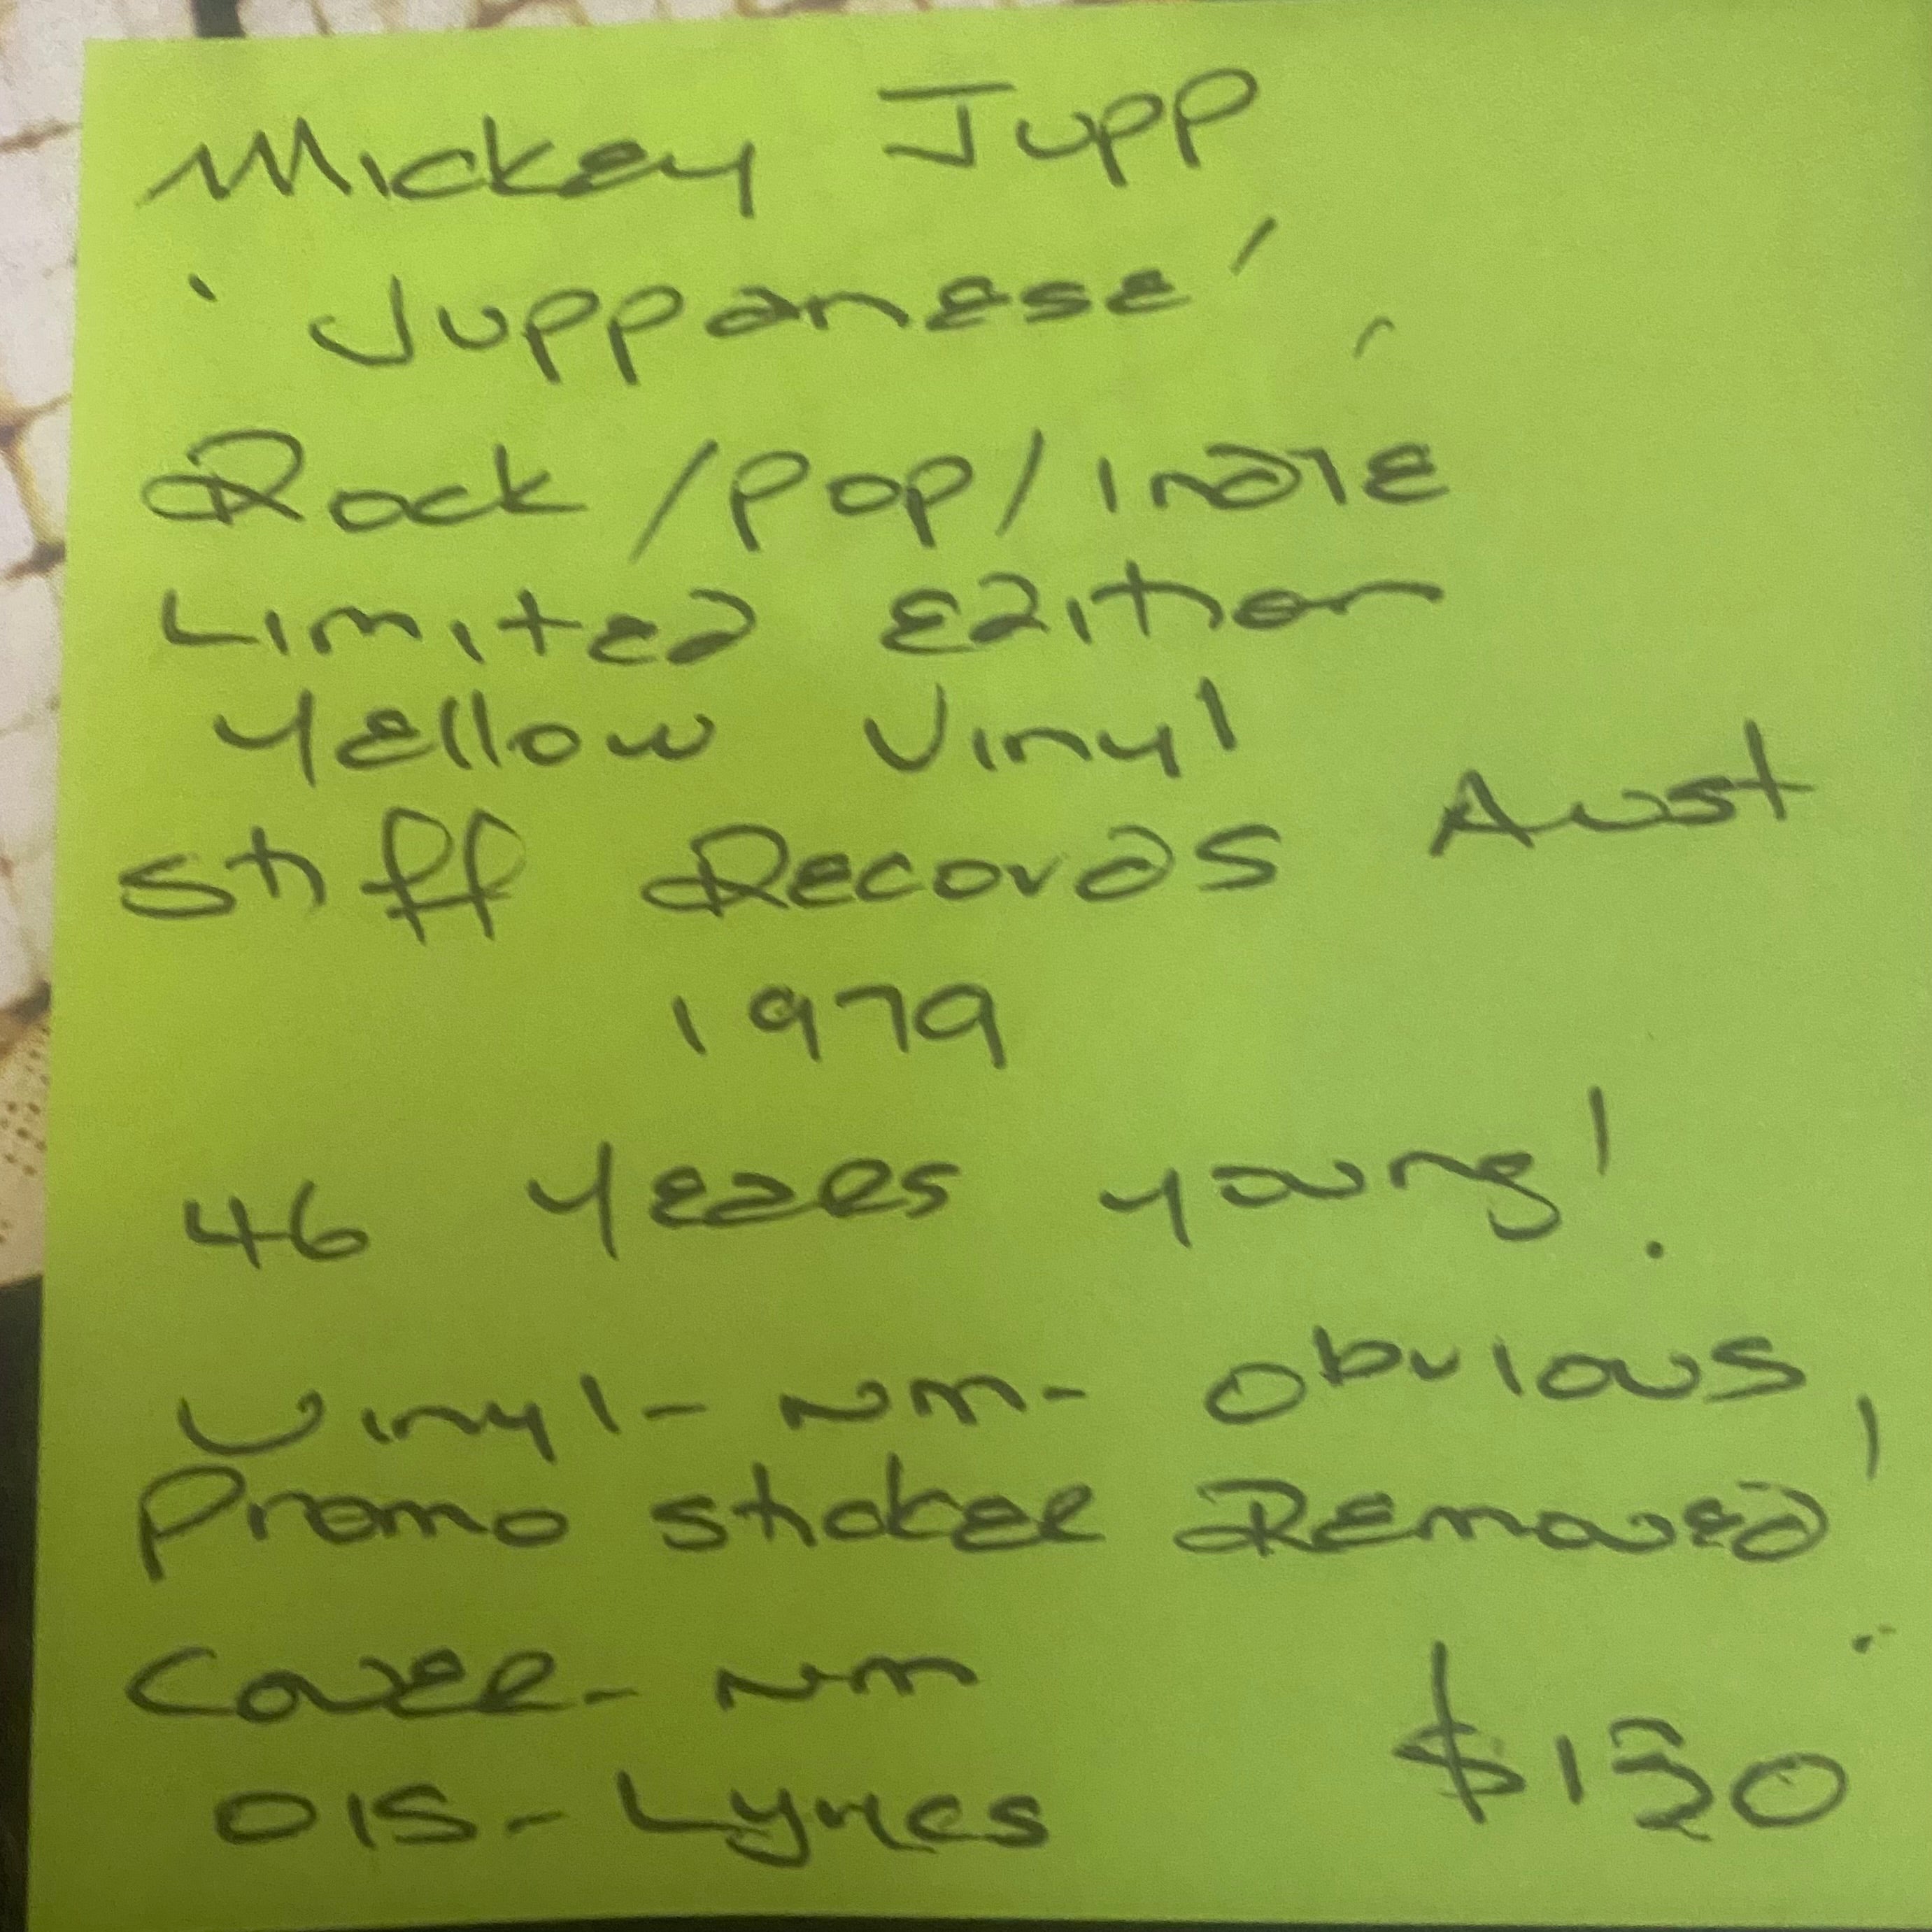 Mickey Jupp
'Juppanese'
Rock/Pop/Indie
Limited Edition
Yellow Vinyl
Stiff Records Aust
1979
46 Years young!
Vinyl-NM- Obvious
Promo sticker Removed!
Cover-NM
OIS-Lyrics $130